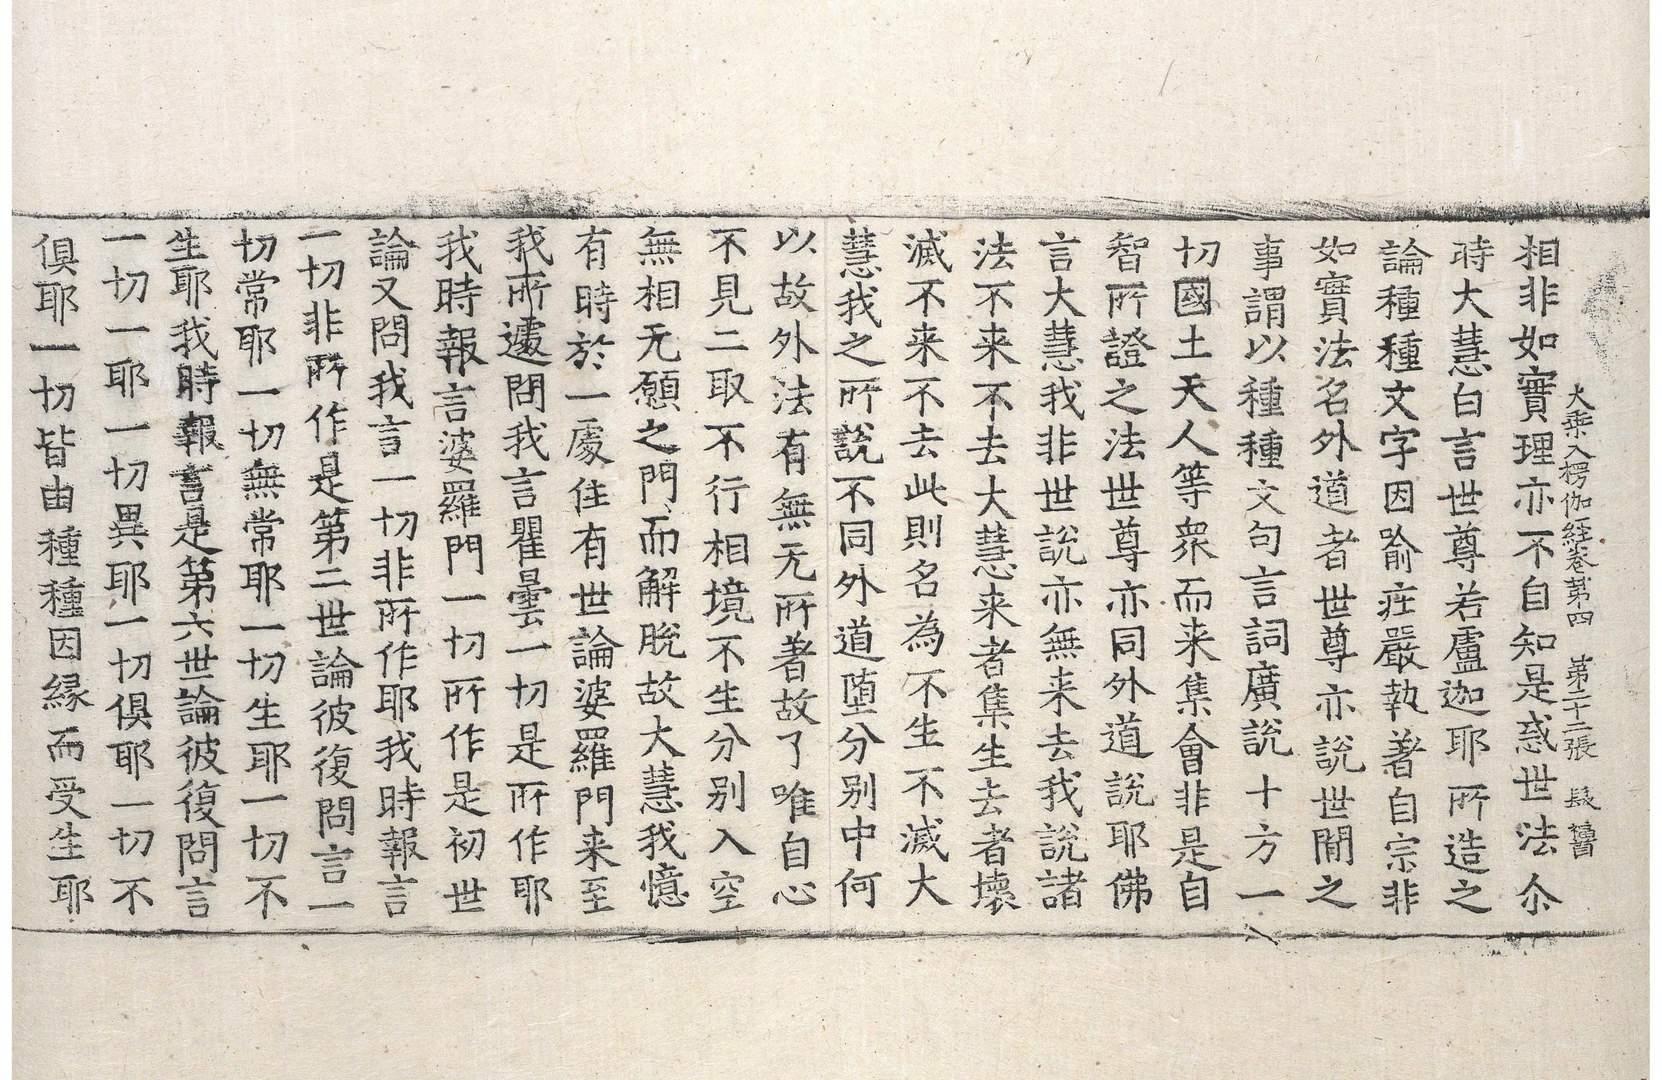 大乗入楞伽経卷第四 第二十二張
相非如實理亦不自知是惑世法尒
時大慧白言世尊若盧迦耶所造之
論種種文字因喻莊嚴執著自宗非
如實法名外道者世尊亦說世間之
事謂以種種文句言詞廣說十方一
切國土天人等衆而来集會非是自
智所證之法世尊亦同外道說耶佛
言大慧我非世說亦無来去我說諸
法不来不去大慧来者集生去者壞
滅不来不去此則名為不生不滅大
慧我之所說不同外道堕分別中何
以故外法有無无所著故了唯自心
不見二取不行相境不生分別入空
無相无願之門而解脫故大慧我憶
有時於一處住有世論婆羅門来至
我所遽問我言瞿曇一切是所作耶
我時報言婆羅門一切所作是初世
論又問我言一切非所作耶我時報言
一切非所作是第二世論彼復問言一
切常耶一切無常耶一切生耶一切不
生耶我時報言是第六世論彼復問言
一切一耶一切異耶一切俱耶一切不
俱耶一切皆由種種因緣而受生耶